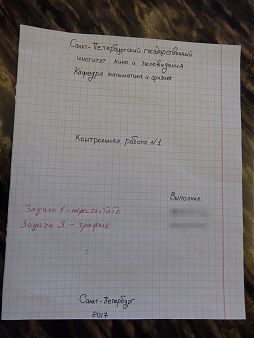 Санкт-Петербургский государственный
институт кино и телевидения
Кафедра математики и физики
Контрольная работа №1
Выполнил:
Задача 1 - пересчитать
Задача 3 - график
Санкт-Петербург
2017